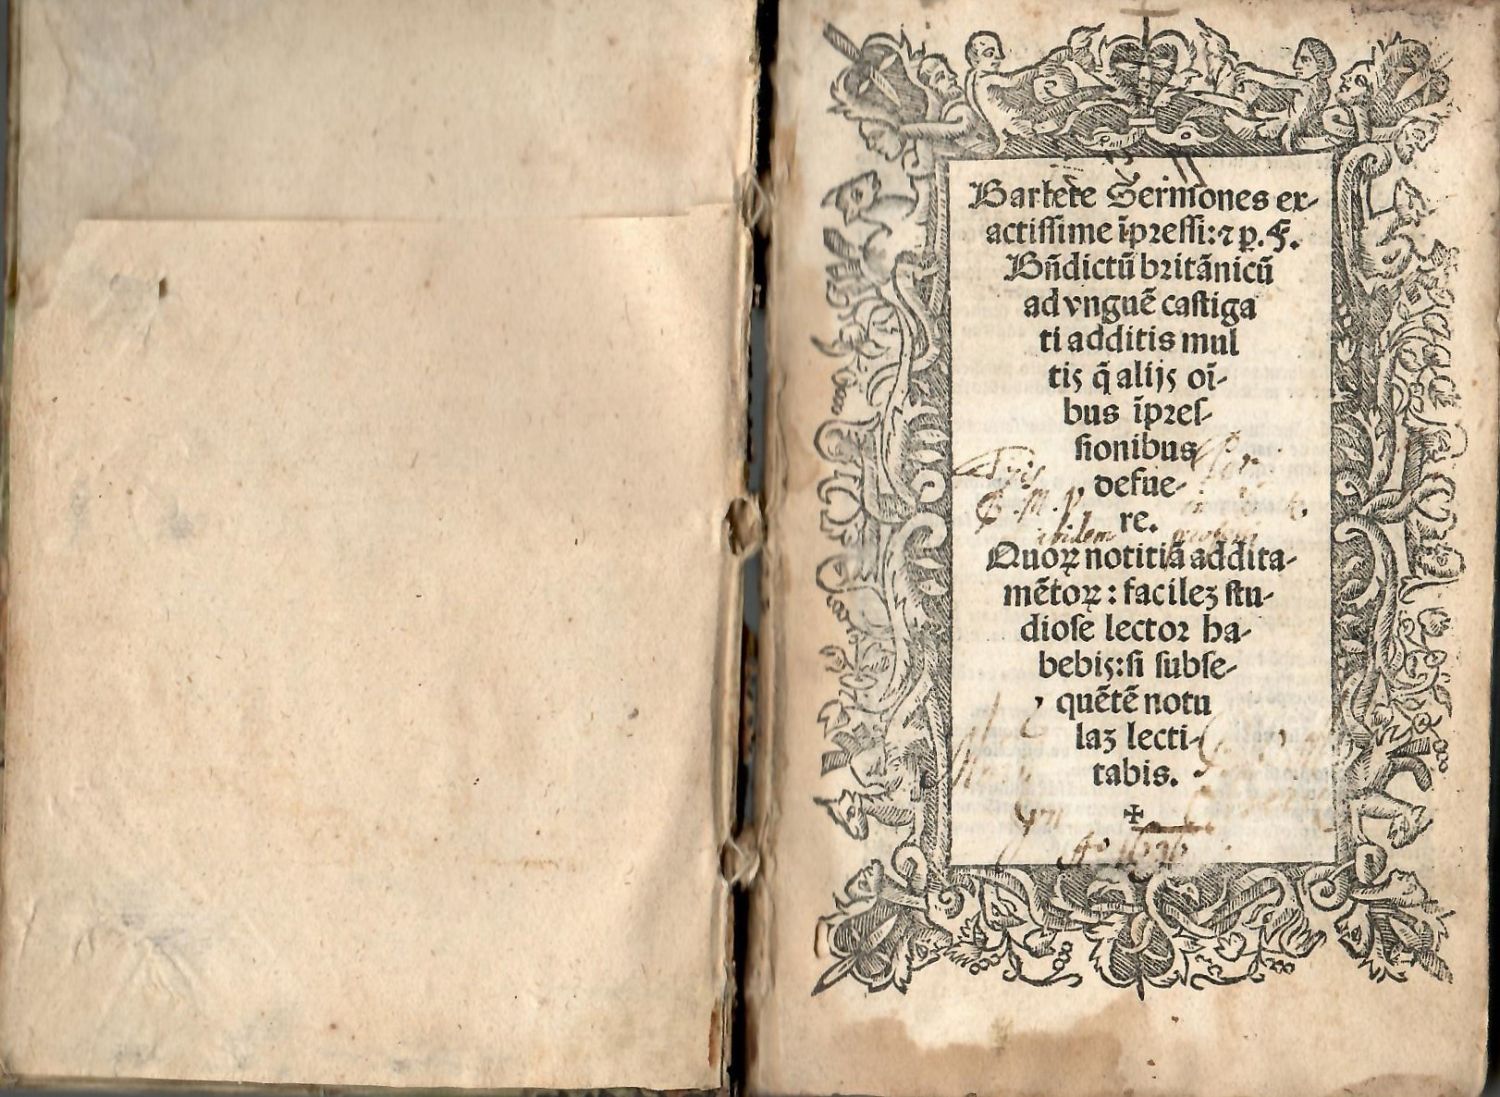 Barlete Sermones ex-
actissime īpressi: ⁊ p. F.
Bn̄dictū britānicū
ad vnguē castiga
ti additis mul
tis q̄ alijs oī-
bus īpres-
sionibus
defue-
re.
ibidem
Quoꝝ notitiā addita-
mētoꝝ : facileʒ stu-
diose lector ha-
bebis: si subse-
quētē notu
laʒ lecti-
tabis.
✠